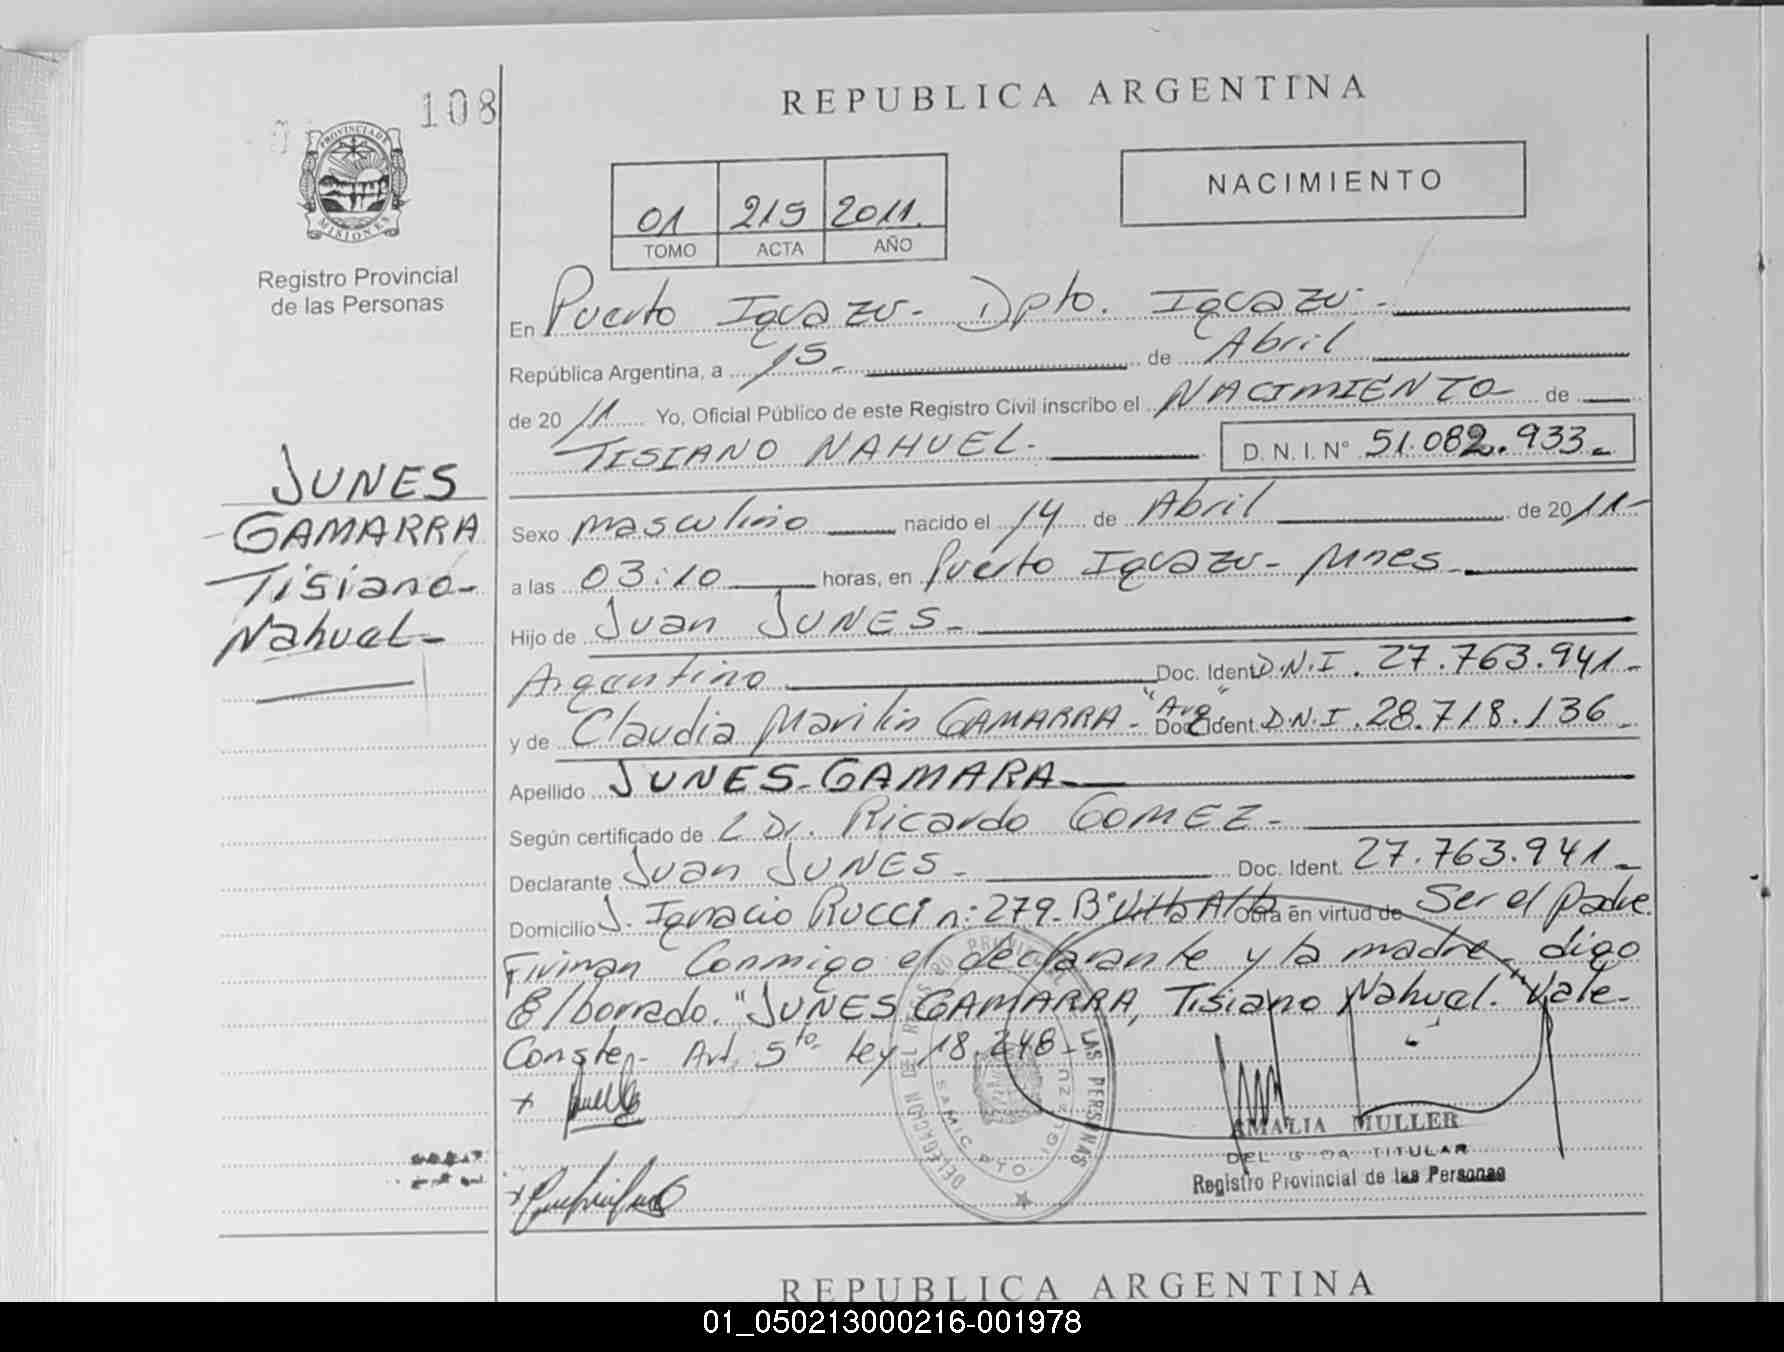 108
PROVINCIA DE
MISIONES
Registro Provincial
de las Personas
JUNES
GAMARRA
Tisiano-
Nahuel-
REPUBLICA ARGENTINA
01 215 2011.
TOMO ACTA AÑO
NACIMIENTO
En Puerto Iguazu- Dpto. Iguazu-
República Argentina, a 15- de Abril
de 20 11 Yo, Oficial Público de este Registro Civil inscribo el NACIMIENTO de
TISIANO NAHUEL- D. N. I. N° 51.082.933-
Sexo masculino nacido el 14 de Abril de 20 11-
a las 03:10 horas, en Puerto Iguazu- Mnes-
Hijo de Juan JUNES-
Argentino Doc. Ident D.N.I. 27.763.941-
y de Claudia Marilin GAMARRA- "Arg" Doc. Ident. D.N.I. 28.718.136-
Apellido JUNES-GAMARA-
Según certificado de L Dr. Ricardo GOMEZ-
Declarante Juan JUNES- Doc. Ident. 27.763.941-
Domicilio J. Ignacio Rucci n: 279- B° Villa Alta Obra en virtud de Ser el padre.
Firman Conmigo el declarante y la madre- digo
E/borrado. "JUNES GAMARRA, Tisiano Nahuel." Vale-
Conste- Art. 5to- Ley 18.248-
DELEGACION DEL REGISTRO PROVINCIAL DE LAS PERSONAS
PTO. IGUAZU
AMALIA MULLER
TITULAR
Registro Provincial de las Personas
REPUBLICA ARGENTINA
01_050213000216-001978